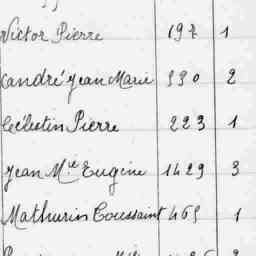 Victor Pierre 197 1
André Jean Marie 990 2
Célestin Pierre 223 1
Jean M.ie Eugène 1429 3
Mathurin Toussaint 469 1